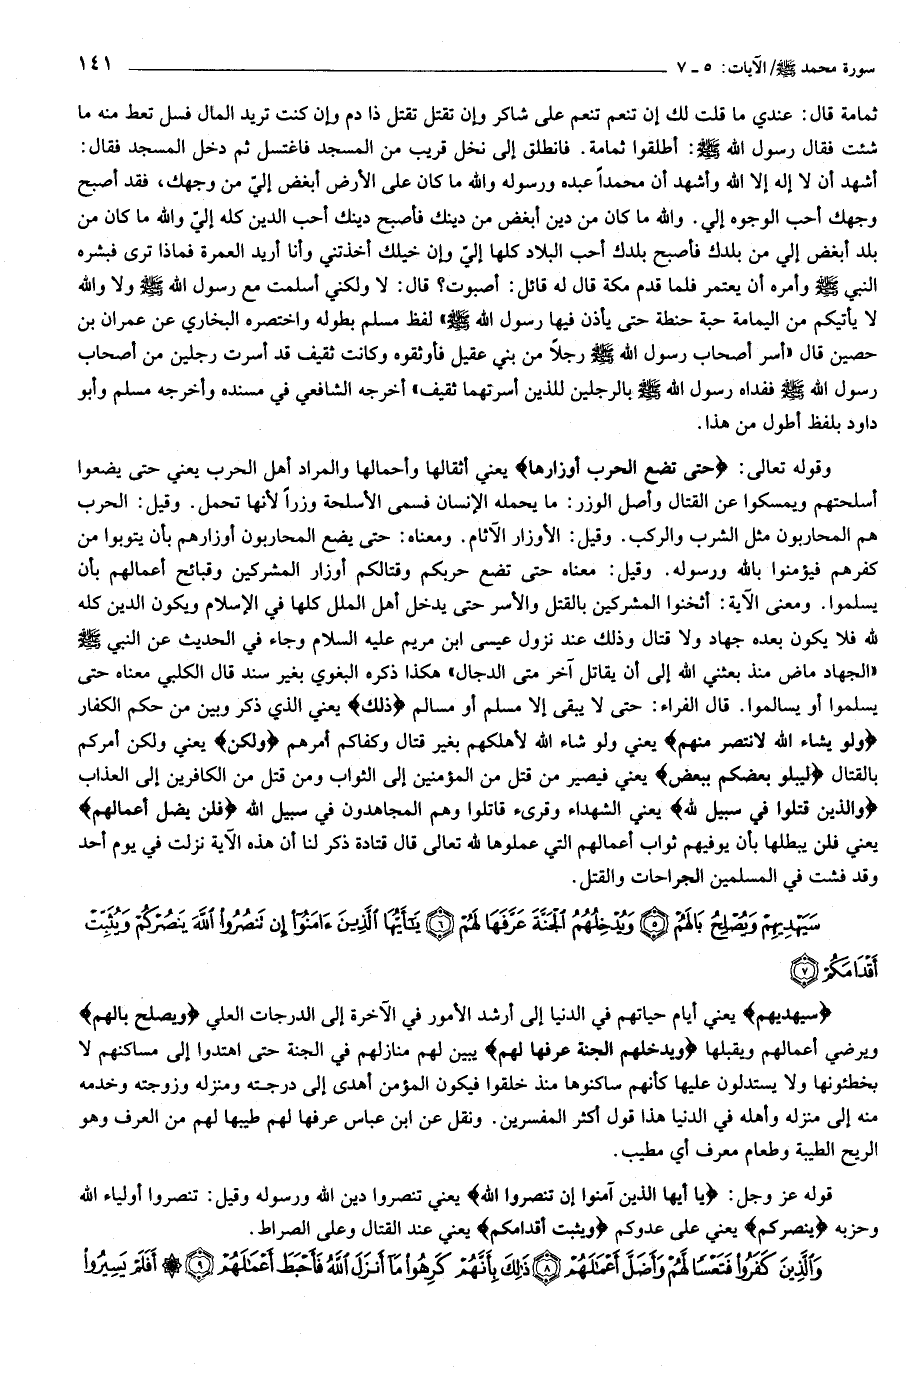 سورة محمد ﷺ/ الآيات: ٥ ـ ٧ ١٤١
ثمامة قال: عندي ما قلت لك إن تنعم تنعم على شاكر وإن تقتل تقتل ذا دم وإن كنت تريد المال فسل تعط منه ما
شئت فقال رسول الله ﷺ: أطلقوا ثمامة. فانطلق إلى نخل قريب من المسجد فاغتسل ثم دخل المسجد فقال:
أشهد أن لا إله إلا الله وأشهد أن محمداً عبده ورسوله والله ما كان على الأرض أبغض إليّ من وجهك، فقد أصبح
وجهك أحب الوجوه إلي. والله ما كان من دين أبغض من دينك فأصبح دينك أحب الدين كله إليّ والله ما كان من
بلد أبغض إلي من بلدك فأصبح بلدك أحب البلاد كلها إليّ وإن خيلك أخذتني وأنا أريد العمرة فماذا ترى فبشره
النبي ﷺ وأمره أن يعتمر فلما قدم مكة قال له قائل: أصبوت؟ قال: لا ولكني أسلمت مع رسول الله ﷺ ولا والله
لا يأتيكم من اليمامة حبة حنطة حتى يأذن فيها رسول الله ﷺ» لفظ مسلم بطوله واختصره البخاري عن عمران بن
حصين قال «أسر أصحاب رسول الله ﷺ رجلاً من بني عقيل فأوثقوه وكانت ثقيف قد أسرت رجلين من أصحاب
رسول الله ﷺ ففداه رسول الله ﷺ بالرجلين للذين أسرتهما ثقيف» أخرجه الشافعي في مسنده وأخرجه مسلم وأبو
داود بلفظ أطول من هذا.
وقوله تعالى: ﴿حتى تضع الحرب أوزارها﴾ يعني أثقالها وأحمالها والمراد أهل الحرب يعني حتى يضعوا
أسلحتهم ويمسكوا عن القتال وأصل الوزر: ما يحمله الإنسان فسمى الأسلحة وزراً لأنها تحمل. وقيل: الحرب
هم المحاربون مثل الشرب والركب. وقيل: الأوزار الآثام. ومعناه: حتى يضع المحاربون أوزارهم بأن يتوبوا من
كفرهم فيؤمنوا بالله ورسوله. وقيل: معناه حتى تضع حربكم وقتالكم أوزار المشركين وقبائح أعمالهم بأن
يسلموا. ومعنى الآية: أثخنوا المشركين بالقتل والأسر حتى يدخل أهل الملل كلها في الإسلام ويكون الدين كله
لله فلا يكون بعده جهاد ولا قتال وذلك عند نزول عيسى ابن مريم عليه السلام وجاء في الحديث عن النبي ﷺ
«الجهاد ماض منذ بعثني الله إلى أن يقاتل آخر متى الدجال» هكذا ذكره البغوي بغير سند قال الكلبي معناه حتى
يسلموا أو يسالموا. قال الفراء: حتى لا يبقى إلا مسلم أو مسالم ﴿ذلك﴾ يعني الذي ذكر وبين من حكم الكفار
﴿ولو يشاء الله لانتصر منهم﴾ يعني ولو شاء الله لأهلكهم بغير قتال وكفاكم أمرهم ﴿ولكن﴾ يعني ولكن أمركم
بالقتال ﴿ليبلو بعضكم ببعض﴾ يعني فيصير من قتل من المؤمنين إلى الثواب ومن قتل من الكافرين إلى العذاب
﴿والذين قتلوا في سبيل لله﴾ يعني الشهداء وقرىء قاتلوا وهم المجاهدون في سبيل الله ﴿فلن يضل أعمالهم﴾
يعني فلن يبطلها بأن يوفيهم ثواب أعمالهم التي عملوها لله تعالى قال قتادة ذكر لنا أن هذه الآية نزلت في يوم أحد
وقد فشت في المسلمين الجراحات والقتل.
سَيَهْدِيهِمْ وَيُصْلِحُ بَالَهُمْ ٥ وَيُدْخِلُهُمُ الْجَنَّةَ عَرَّفَهَا لَهُمْ ٦ يَٰٓأَيُّهَا الَّذِينَ ءَامَنُوٓا إِن تَنصُرُوا اللَّهَ يَنصُرْكُمْ وَيُثَبِّتْ
أَقْدَامَكُمْ ٧
﴿سيهديهم﴾ يعني أيام حياتهم في الدنيا إلى أرشد الأمور في الآخرة إلى الدرجات العلي ﴿ويصلح بالهم﴾
ويرضي أعمالهم ويقبلها ﴿ويدخلهم الجنة عرفها لهم﴾ يبين لهم منازلهم في الجنة حتى اهتدوا إلى مساكنهم لا
يخطئونها ولا يستدلون عليها كأنهم ساكنوها منذ خلقوا فيكون المؤمن أهدى إلى درجته ومنزله وزوجته وخدمه
منه إلى منزله وأهله في الدنيا هذا قول أكثر المفسرين. ونقل عن ابن عباس عرفها لهم طيبها لهم من العرف وهو
الريح الطيبة وطعام معرف أي مطيب.
قوله عز وجل: ﴿يا أيها الذين آمنوا إن تنصروا الله﴾ يعني تنصروا دين الله ورسوله وقيل: تنصروا أولياء الله
وحزبه ﴿ينصركم﴾ يعني على عدوكم ﴿ويثبت أقدامكم﴾ يعني عند القتال وعلى الصراط.
وَالَّذِينَ كَفَرُوا فَتَعْسًا لَّهُمْ وَأَضَلَّ أَعْمَٰلَهُمْ ٨ ذَٰلِكَ بِأَنَّهُمْ كَرِهُوا مَآ أَنزَلَ اللَّهُ فَأَحْبَطَ أَعْمَٰلَهُمْ ٩ ۞ أَفَلَمْ يَسِيرُوا